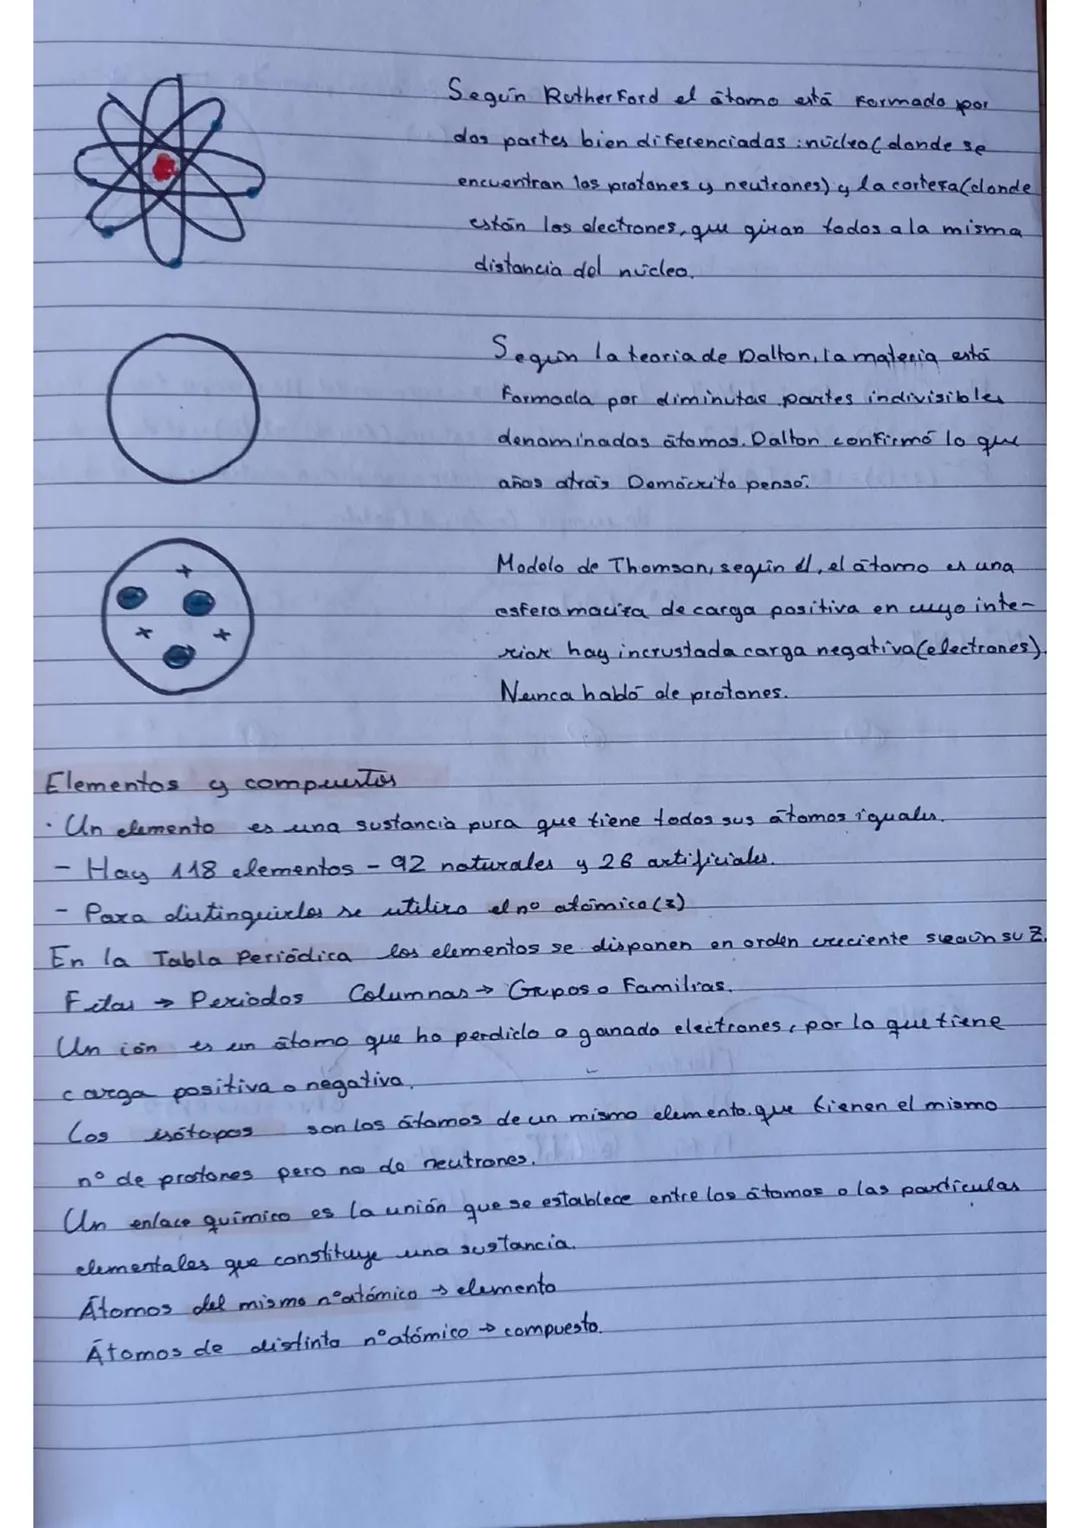 Según Rutherford el átomo está formado por
dos partes bien diferenciadas: núcleo (donde se
encuentran los protones y neutrones) y la corteza (donde
están los electrones, que giran todos a la misma
distancia del núcleo.
Según la teoria de Dalton, la materia está
formada por diminutas partes indivisibles
denominadas átomos. Dalton confirmó lo que
años atrás Demócrito pensó.
+
+
+
Modelo de Thomson, según él, el átomo es una
esfera maciza de carga positiva en cuyo inte-
rior hay incrustada carga negativa (electrones).
Nunca habló de protones.
Elementos y compuestos
· Un elemento es una sustancia pura que tiene todos sus átomos iguales.
- Hay 118 elementos - 92 naturales y 26 artificiales.
- Para distinguirlos se utiliza el nº atómico (z)
En la Tabla Periódica los elementos se disponen en orden creciente según su Z.
Filas → Periodos Columnas → Grupos o Familias.
Un ión es un átomo que ha perdido o ganado electrones, por lo que tiene
carga positiva o negativa.
Los isótopos son los átomos de un mismo elemento que tienen el mismo
nº de protones pero no de neutrones.
Un enlace químico es la unión que se establece entre los átomos o las partículas
elementales que constituye una sustancia.
Átomos del mismo nº atómico → elemento
Átomos de distinto nº atómico → compuesto.